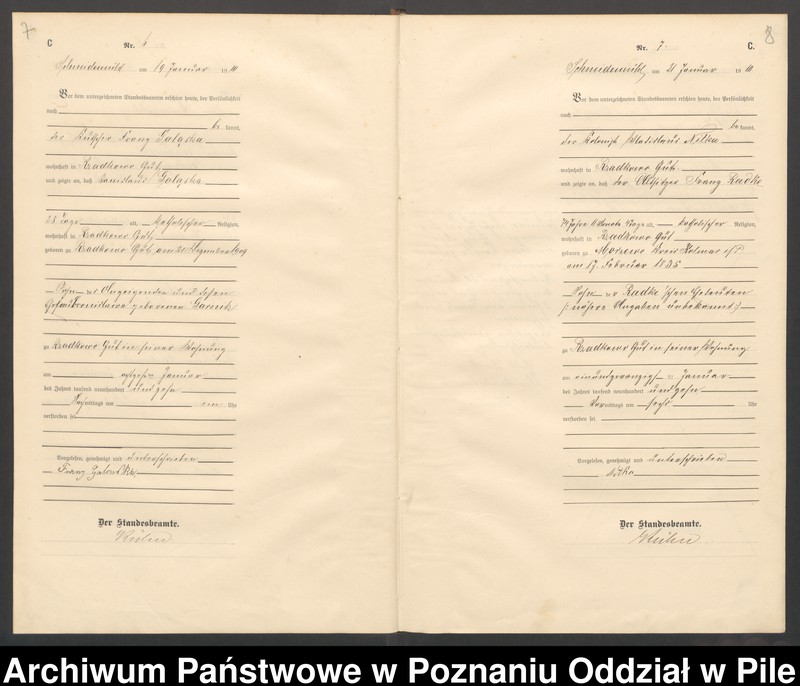 7
C
Nr. 6
Schneidemühl am 19 Januar 19 10
Vor dem unterzeichneten Standesbeamten erschien heute, der Persönlichkeit
nach
be kannt,
der Kutscher Franz Galąska
wohnhaft in Radkowo Gut,
und zeigte an, daß Stanislaus Galąska
28 Tage alt, katholischer Religion,
wohnhaft in Radkowo Gut,
geboren zu Radkowo Gut, am
Sohn des Anzeigenden und dessen
Ehefrau Bronislawa geborenen
zu Radkowo Gut in seiner Wohnung
am Januar
des Jahres tausend neunhundert und zehn
Nachmittags um ein Uhr
verstorben sei
Vorgelesen, genehmigt und unterschrieben
Franz
Der Standesbeamte.
8
C.
Nr. 7
Schneidemühl, am 21 Januar 19 10
Vor dem unterzeichneten Standesbeamten erschien heute, der Persönlichkeit
nach
be kannt,
der Kolonist Wladislaus Nitka
wohnhaft in Radkowo Gut
und zeigte an, daß der Altsitzer Franz Radke
74 Jahre 11 Monate Tage alt, katholischer Religion,
wohnhaft in Radkowo Gut
geboren zu Morzewo Kreis Kolmar i/P
am 17. Februar 1835
Sohn der Radke'schen Eheleuten
(: nähere Angaben unbekannt :)
zu Radkowo Gut in seiner Wohnung
am einundzwanzigsten Januar
des Jahres tausend neunhundert und zehn
Vormittags um sechs Uhr
verstorben sei
Vorgelesen, genehmigt und unterschrieben
Nitka
Der Standesbeamte.
Archiwum Państwowe w Poznaniu Oddział w Pile